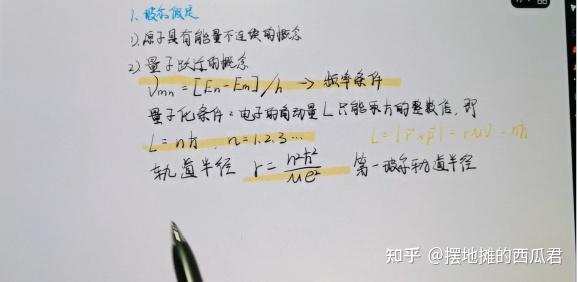 1、玻尔假定
1)、原子具有能量不连续的概念
2)、量子跃迁的概念
νmn = [En-Em]/h → 频率条件
量子化条件:电子的角动量L只能取ħ的整数倍,即
L = nħ, n=1.2.3… L=|r×p|=rμv=nħ
轨道半径 r = n²ħ²/μe² 第一玻尔轨道半径
知乎 @摆地摊的西瓜君